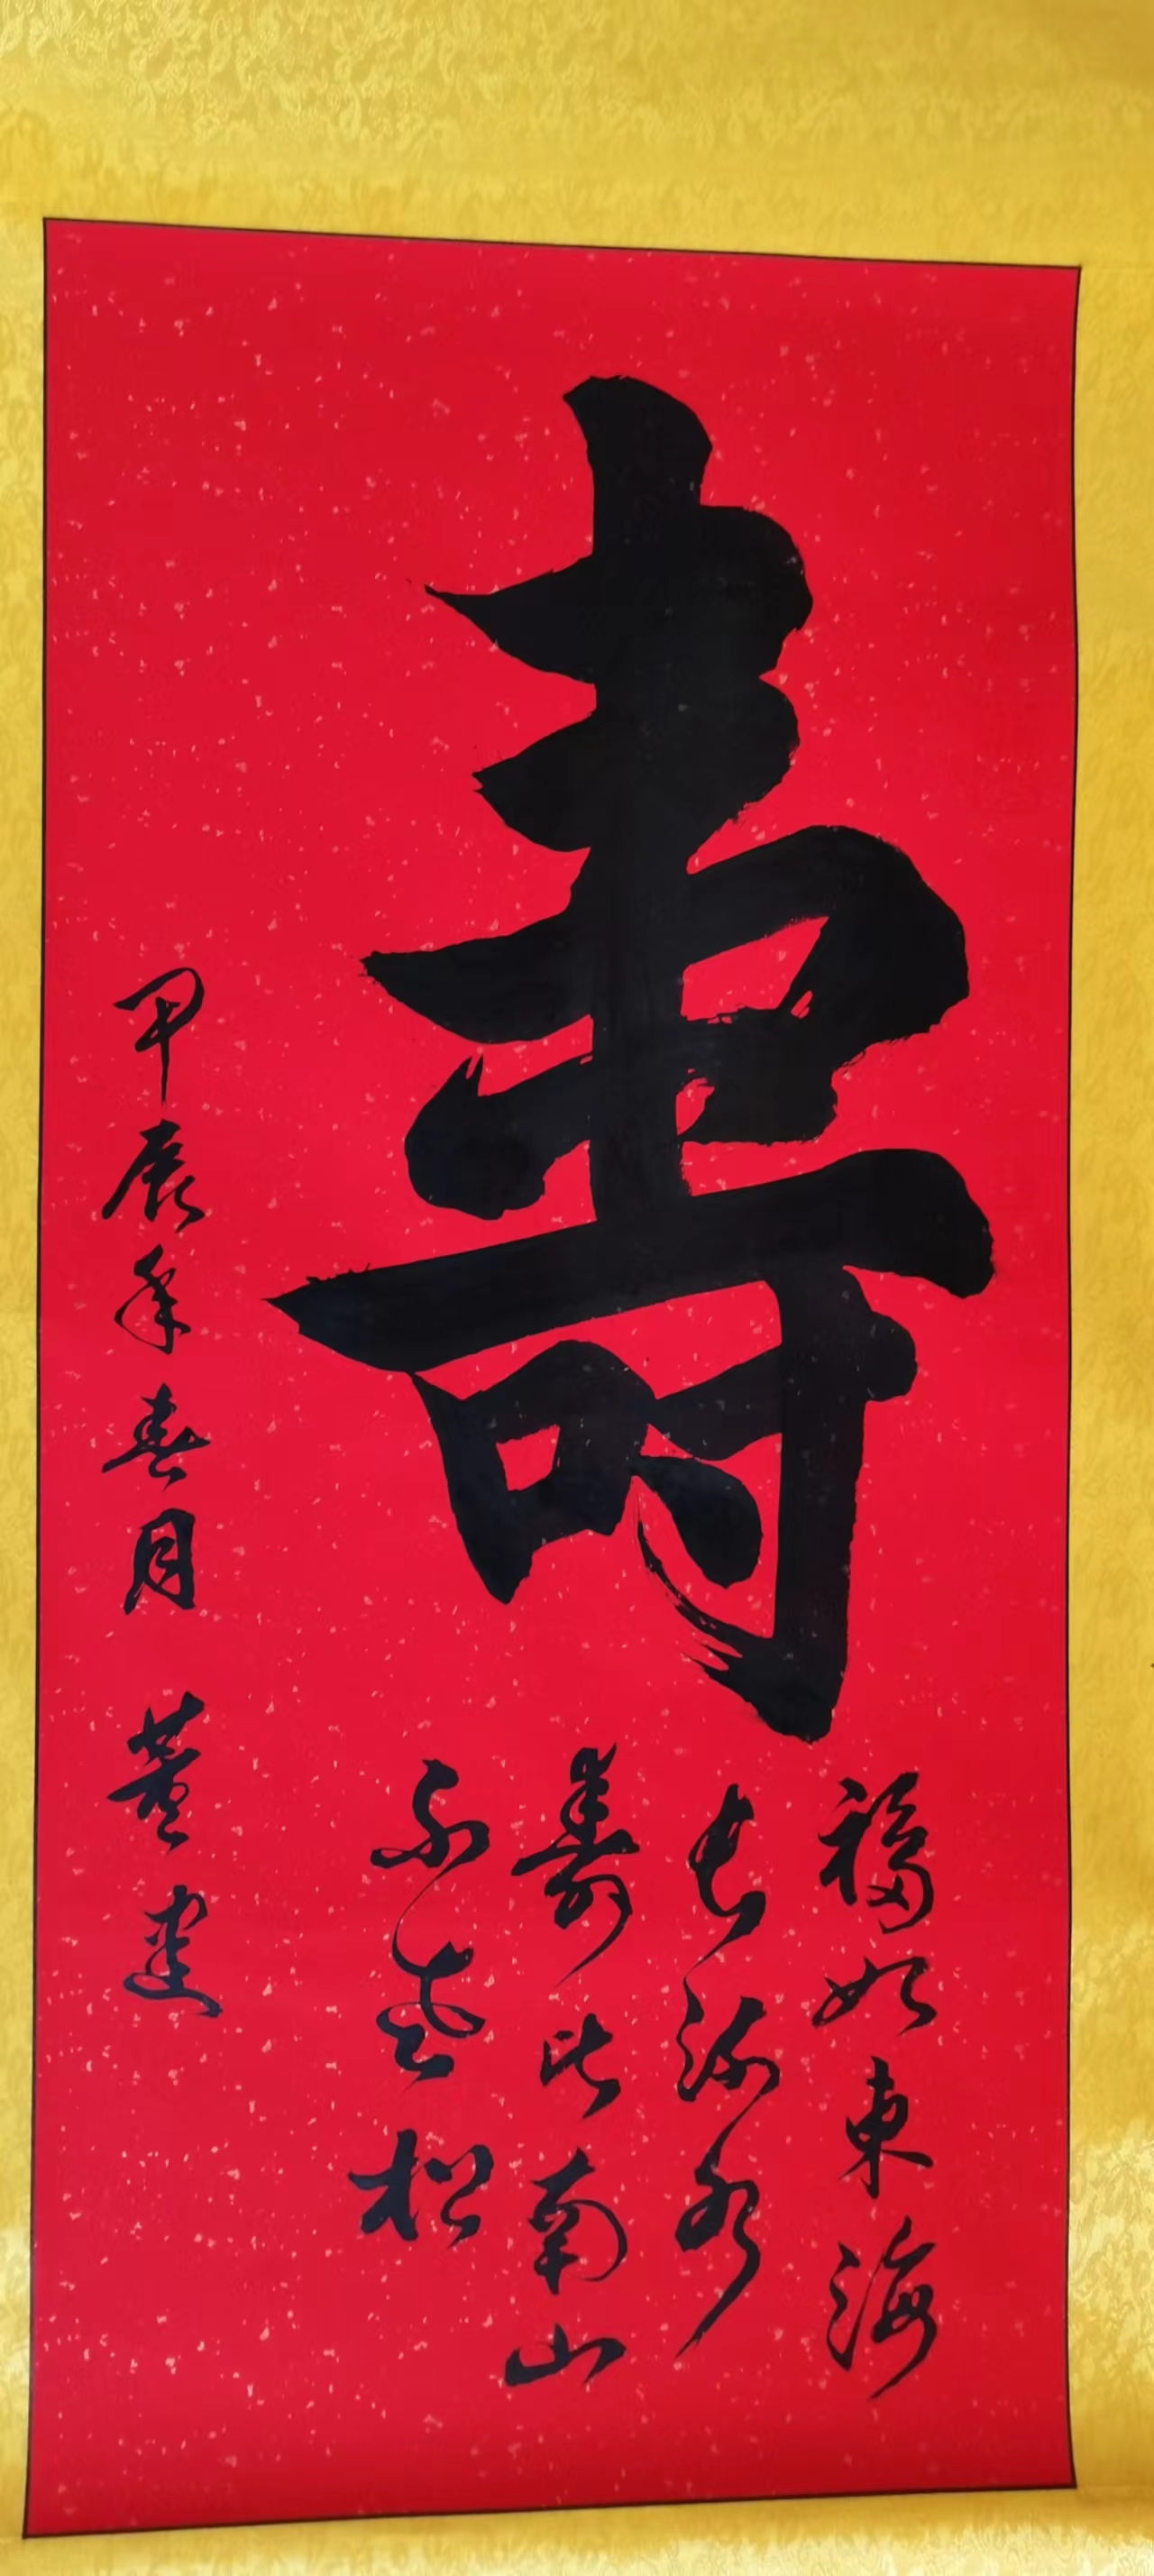 壽
福如東海
長流水
壽比南山
不老松
甲辰年春月 董建